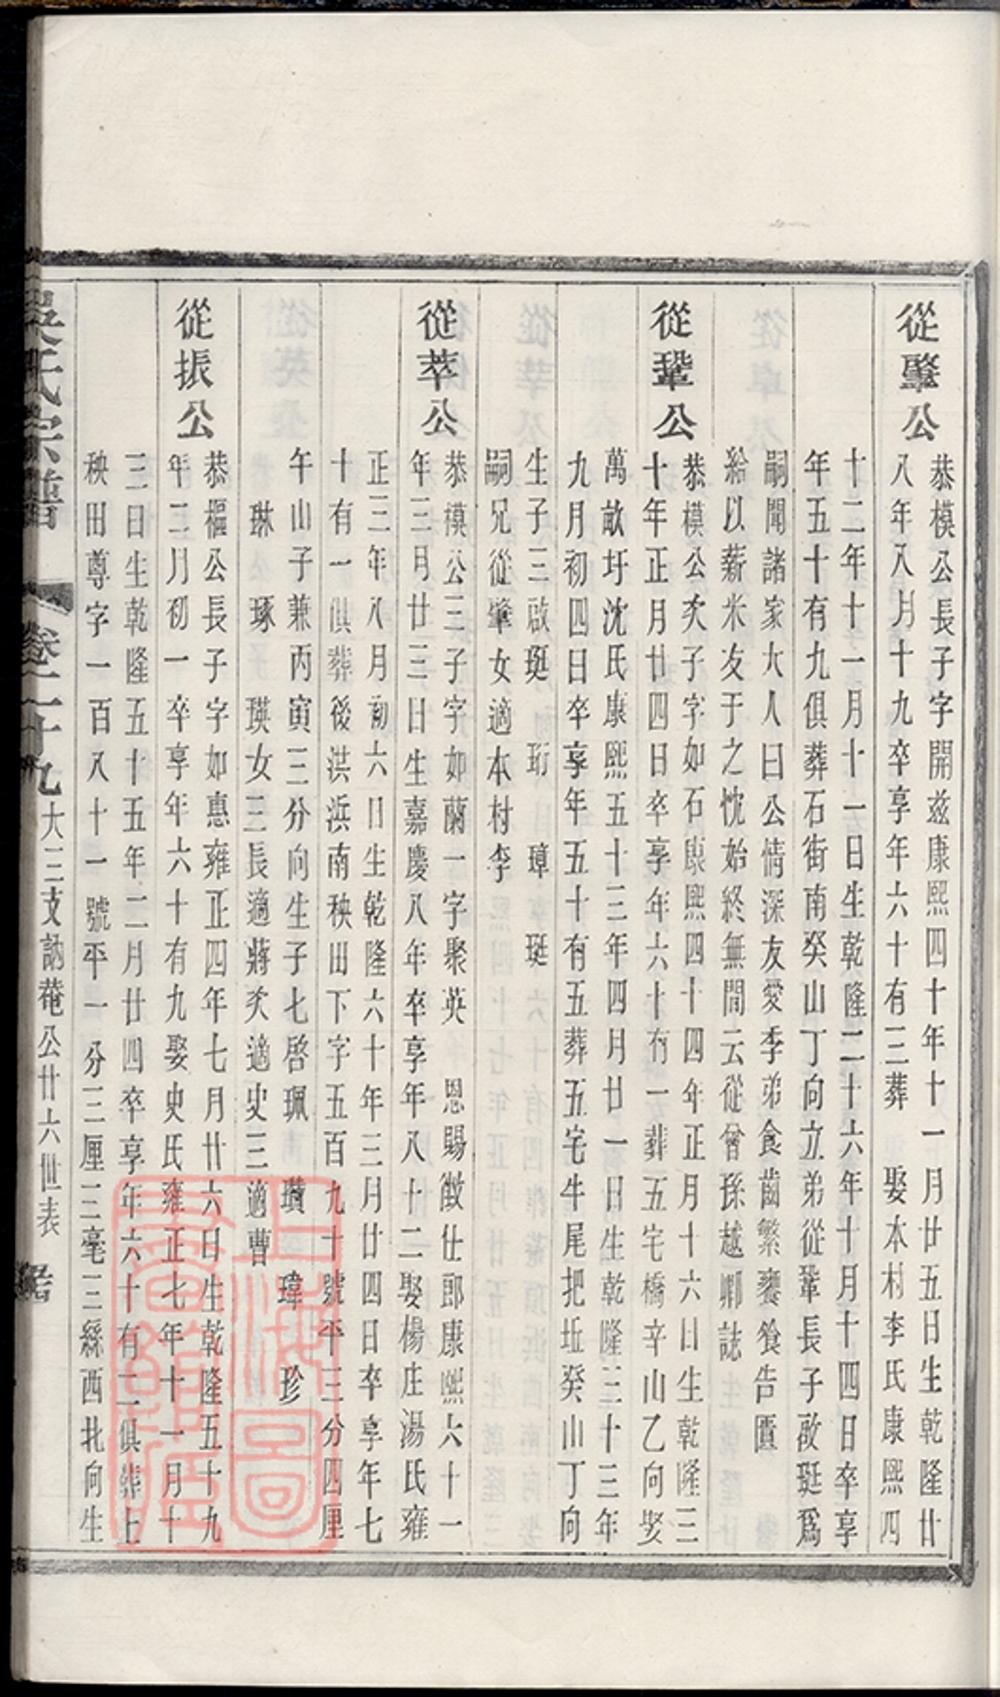 從肇公
恭模公長子字開兹康熙四十年十一月廿五日生乾隆廿
八年八月十九卒享年六十有三葬　娶本村李氏康熙四
十二年十一月十一日生乾隆二十六年十月十四日卒享
年五十有九俱葬石街南癸山丁向立弟從鞏長子啟珽爲
嗣聞諸家大人曰公情深友愛季弟食齒繁饔飧告匱
給以薪米友于之忱始終無間云從曾孫越卿誌
從鞏公
恭模公次子字如石康熙四十四年正月十六日生乾隆三
十年正月廿四日卒享年六十有一葬五宅橋辛山乙向娶
萬畝圩沈氏康熙五十三年四月廿一日生乾隆三十三年
九月初四日卒享年五十有五葬五宅牛尾把坵癸山丁向
生子三啟珽　珩　璋　珽
嗣兄從肇女適本村李
從萃公
恭模公三子字如蘭一字聚英　恩賜徵仕郎康熙六十一
年三月廿三日生嘉慶八年卒享年八十二娶楊庄湯氏雍
正三年八月初六日生乾隆六十年三月廿四日卒享年七
十有一俱葬後洪浜南秧田下字五百九十號平三分四厘
午山子兼丙寅三分向生子七啓珮　瓚　瑋　珍
琳　琢　瑛女三長適蔣次適史三適曹
從振公
恭樞公長子字如惠雍正四年七月廿六日生乾隆五十九
年二月初一卒享年六十有九娶史氏雍正七年十一月十
三日生乾隆五十五年二月廿四卒享年六十有二俱葬上
秧田尊字一百八十一號平一分三厘三毫三絲西北向生
吳氏宗譜　卷二十九　大三支訥菴公廿六世表